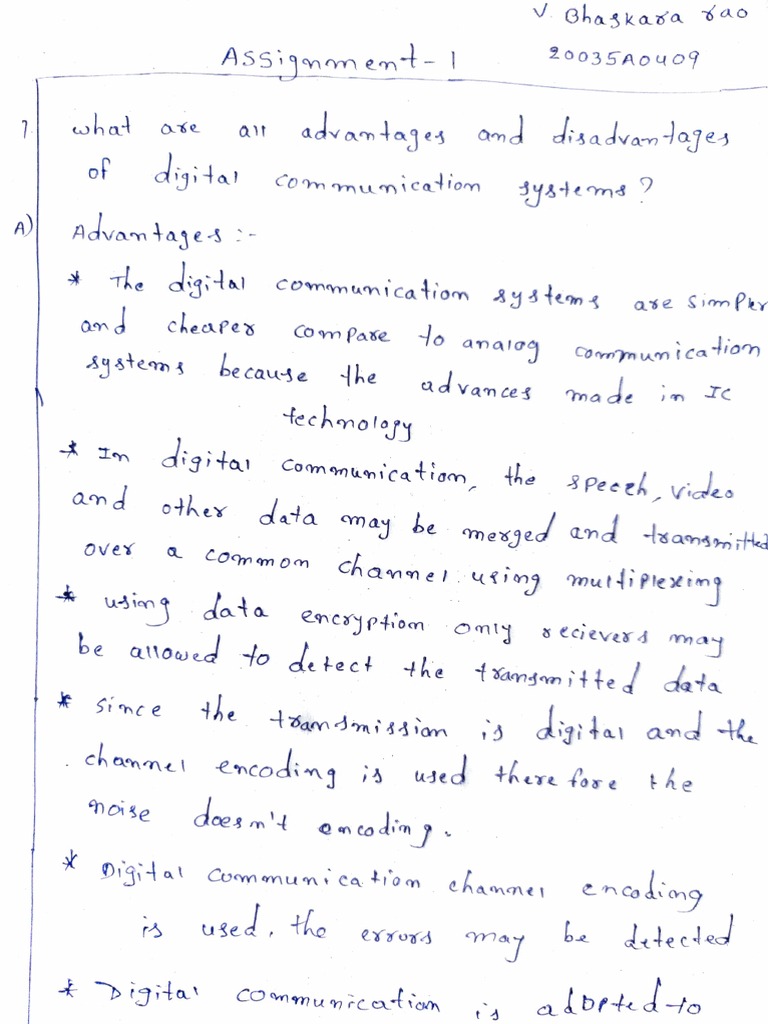 V. Bhaskara rao
Assignment-1
20035A0409
1. what are all advantages and disadvantages
of digital communication systems?
A) Advantages :-
* The digital communication systems are simpler
and cheaper compare to analog communication
systems because the advances made in IC
technology
* In digital communication, the speech, video
and other data may be merged and transmitted
over a common channel using multiplexing
* using data encryption only recievers may
be allowed to detect the transmitted data
* since the transmission is digital and the
channel encoding is used therefore the
noise doesn't encoding.
* Digital communication channel encoding
is used, the errors may be detected
* Digital communication is adopted to